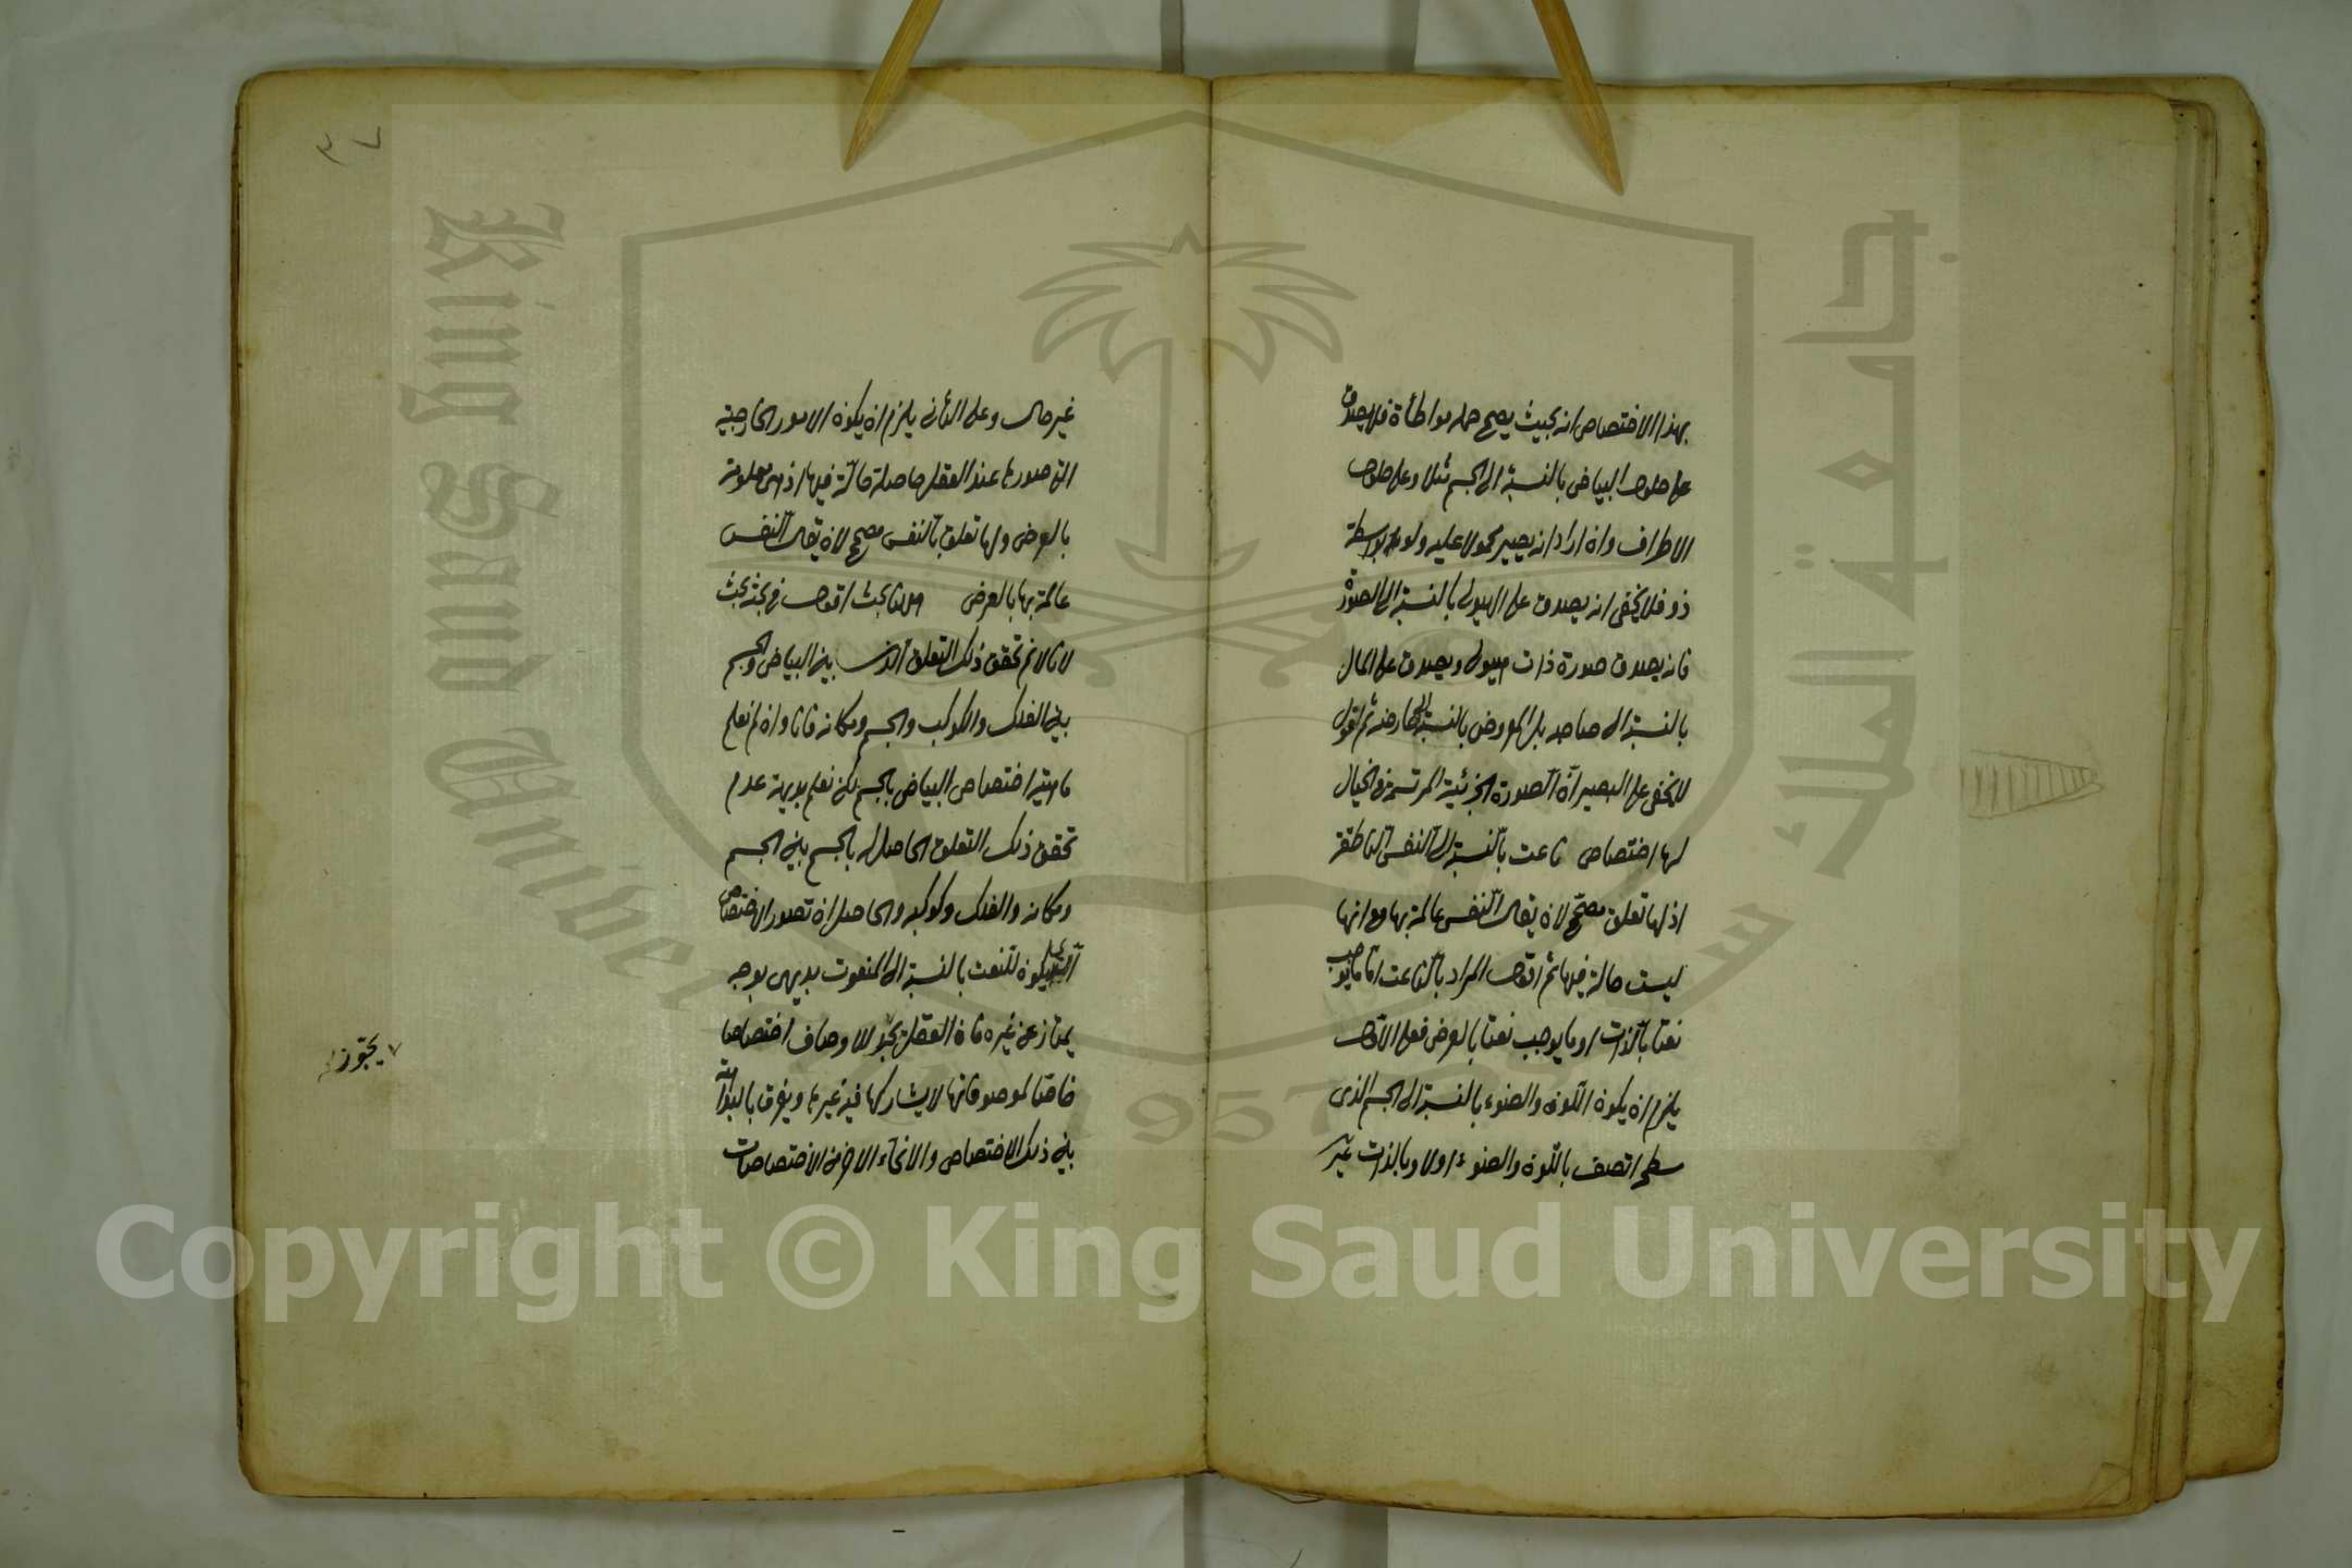 بهذا الاختصاص انه بحيث يصح حمله مواطأة فلا يصدق
على حلول البياض بالنسبة الى الجسم مثلا وعلى حلول
الاطراف وان اراد انه يصير محمولا عليه ولو بواسطة
ذو فلا يخفى انه يصدق على الهيولى بالنسبة الى الصورة
فانه يصدق صورة ذات هيولى ويصدق على المال
بالنسبة الى صاحبه بل المعروض بالنسبة الى عارضه ثم اقول
لا يخفى على البصير ان الصورة الجزئية المرتسمة في الخيال
لها اختصاص ناعت بالنسبة الى النفس الناطقة
اذ لها تعلق مصحح لان يقال النفس عالمة بها مع انها
ليست حالة فيها ثم اقول المراد بالناعت اما ما يوجب
نعتا بالذات او ما يوجب نعتا بالعرض فعلى الاول
يلزم ان يكون اللون والضوء بالنسبة الى الجسم الذى
سطحه اتصف باللون والضوء اولا وبالذات غير
٣٧
غير حال وعلى الثانى يلزم ان يكون الامور الخارجية
التى صورها عند العقل حاصلة حالة فيها اذ هى معلومة
بالعرض ولها تعلق بالنفس مصحح لان يقال النفس
عالمة بها بالعرض بحث اقول فى بحثه بحث
لانا لا نم تحقق ذلك التعلق الذى بين البياض والجسم
بين الفلك والكوكب والجسم ومكانه فانا وان لم نعلم
ماهية اختصاص البياض بالجسم لكن نعلم بديهة عدم
تحقق ذلك التعلق الحاصل له بالجسم بين الجسم
ومكانه والفلك وكوكبه والحاصل ان تصور الاختصاص
يكون للنعت بالنسبة الى المنعوت بديهى بوجه
يمتاز عن غيره فان العقل للاوصاف اختصاصا
خاصا لموصوفاتها لا يشاركها فيه غيرها ويفرق بالبداهة
بين ذلك الاختصاص والانحاء الاخر من الاختصاصات
يجوز
King Saud University
جامعة الملك سعود
1957
Copyright © King Saud University